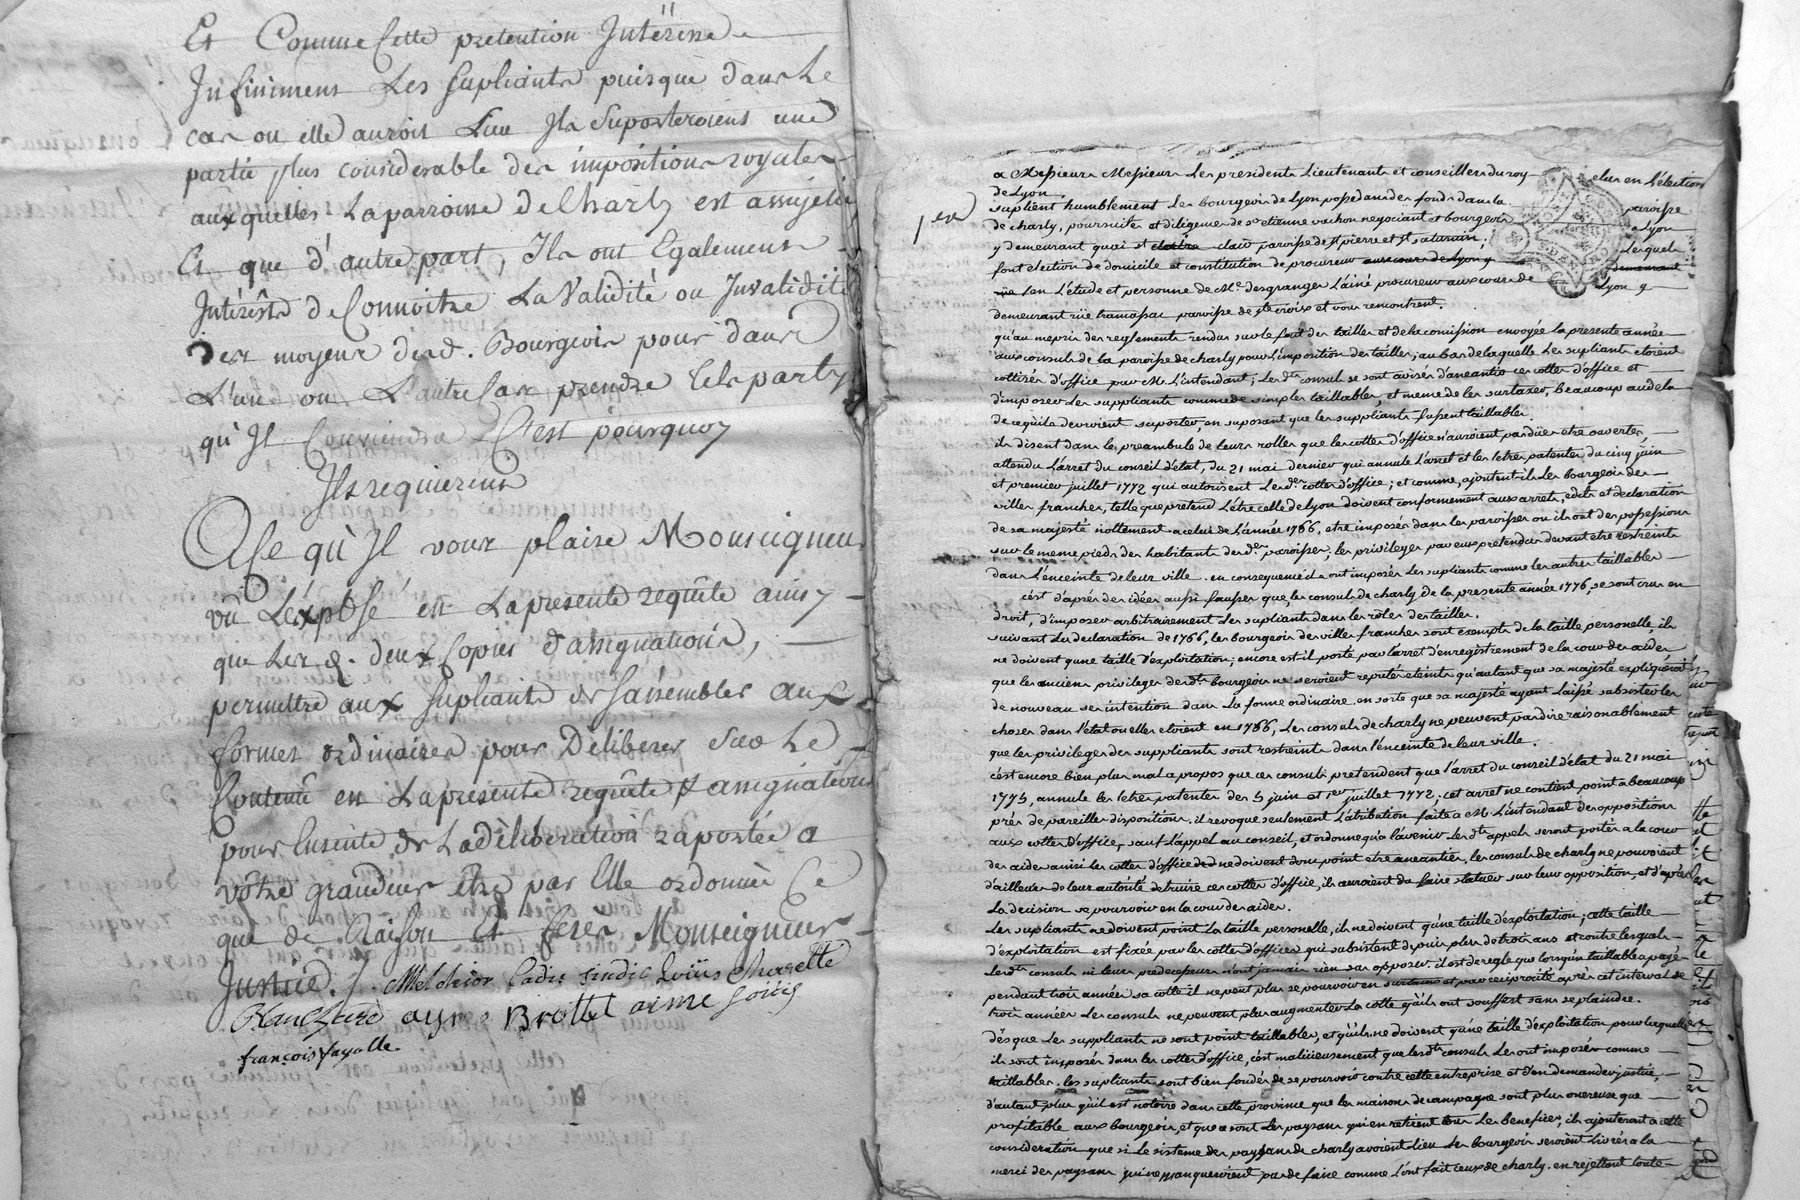 Et Comme Cette pretention Intéresse
Infiniment Les Supliants puisque dans Le
cas ou elle auroit Lieu Ils Suporteroient une
partie plus considerable des impositions royales
auxquelles La parroisse de Charly est assujetie
Et que d'autre part, Ils ont Egalement
Intérêts de Connoitre La Validité ou Invalidité
des moyens desd. Bourgeois pour dans
L'un ou L'autre Cas prendre tels party
qu'Il Conviendra C'est pourquoy
Ils requierent
A Ce qu'Il vous plaise Monseigneur
vû L'expôsé en La presente requête ainsy
que Les d. deux Copies d'assignations,
permettre aux Supliants de S'assembler aux
formes ordinaires pour Déliberer Sur Le
Contenû en La presente requête & assignations
pour Ensuite de La déliberation raportée a
vôtre grandeur être par Elle ordonné Ce
que de Raison Et ferés Monseigneur
Justice ./. Melchior Cadis sindic Loüis Charette
Blanchard aymé Brottet aimé
françois fayolle
1ere
a Messieurs Messieurs Les presidents Lieutenants et conseillers du roy elus en L'élection
de Lyon
suplient humblement Les bourgeois de Lyon possedans des fonds dans la paroisse
de charly, poursuites et diligences de sr etienne vachon negociant et bourgeois de Lyon
y demeurant quai st claire clair paroisse de st pierre et st saturnin. Lesquels
font election de domicile et constitution de procureur aux cours de Lyon y demeurant
rüe en L'étude et personne de Me. desgranges L'ainé procureur aux cours de Lyon y
demeurant rüe tramassac paroisse de ste croix et vous remontrent.
qu'au mepris des reglements rendus sur le fait des tailles et de la comission envoyée la presente année
aux consuls de la paroisse de charly pour L'imposition des tailles; au bas de laquelle Les supliants etoient
cottisés d'office par Mr L'intendant; Les dts consuls se sont avisés d'aneantir ces cottes d'office et
d'imposer Les suppliants comme de simples taillables, et meme de les surtaxer, beaucoup audela
de ce qu'ils devroient suporter, en suposant que les suppliants fussent taillables.
ils disent dans le preambule de leurs rolles que les cottes d'office n'auroient pas dües etre ouvertes,
attendu L'arret du conseil d'état, du 21 mai dernier qui annule L'arret et les letres patentes du cinq juin
et premier juillet 1772 qui autorisent Les des. cottes d'office; et comme, ajoutent-ils Les bourgeois des
villes franches, telle que pretend L'être celle de Lyon doivent conformement aux arrets, edits et declaration
de sa majesté nottement a celui de L'année 1766, etre imposés dans les paroisses ou ils ont des possessions
sur le meme pied des habitants desdes. paroisses, les privileges par eux pretendus devant etre restreints
dans L'enceinte de leur ville. en consequence ils ont imposés Les supliants comme les autres taillables
c'est d'après des idées aussi fausses que, les consuls de charly de la presente année 1776, se sont crus en
droit, d'imposer arbitrairement Les supliants dans les rôles des tailles.
suivant La declaration de 1766, les bourgeois des villes franches sont exempts de la taille personelle, ils
ne doivent qu'une taille d'exploitation; encore est-il porté par L'arret d'enregistrement de la cour des aides
que les anciens privileges desdts bourgeois ne seroient reputés eteints qu'autant que sa majesté expliqueroit
de nouveau ses intentions dans La forme ordinaire. en sorte que sa majesté ayant Laissé subsister les
choses dans L'état ou elles etoient en 1766, Les consuls de charly ne peuvent pas dire raisonablement
que les privileges des suppliants sont restreints dans l'enceinte de leur ville.
c'est encore bien plus mal a propos que ces consuls pretendent que l'arret du conseil d'état du 21 mai
1775, annule les letres patentes des 5 juin et 1er juillet 1772; cet arret ne contient point a beaucoup
près de pareilles dispositions. il revoque seulement L'atribution faite a Mr. L'intendant des oppositions
aux cottes d'office, sauf L'appel au conseil, et ordonne qu'a l'avenir Les dts appels seront portés a la cour
des aides ainsi Les cottes d'office ne doivent donc point etre aneanties, les consuls de charly ne pouvoient
d'ailleurs de leur autorité detruire ces cottes d'office, ils auroient du faire statuer sur leur opposition, et d'après
La decision se pourvoir en la cour des aides.
Les supliants ne doivent point La taille personelle, ils ne doivent qu'une taille d'exploitation; cette taille
d'exploitation est fixée par les cottes d'offices qui subsistent depuis plus de trois ans et contre lesquels
Les dts consuls ni leurs predecesseurs n'ont jamais rien osé opposer. il est de regle que lorsqu'un taillable a payé
pendant trois années sa cotte il ne peut plus se pourvoir en surtaux et par reciprocité après cet interval de
trois années Les consuls ne peuvent plus augmenter La cotte qu'ils ont souffert sans se plaindre.
dès que Les suppliants ne sont point taillables, et qu'ils ne doivent qu'une taille d'exploitation pour laquelle
ils sont imposés dans les cottes d'office, c'est malicieusement que les dts consuls Les ont imposés comme
taillables. les supliants sont bien fondés de se pourvoir contre cette entreprise et d'en demander justice,
d'autant plus qu'il est notoire dans cette province que les maisons de campagne sont plus onereuses que
profitables aux bourgeois, et que ce sont Les paysans qui en retient tous Les benefices, ils ajouteront a cette
consideration que si Le sisteme des paysans de charly avoient lieu Les bourgeois seroient livrés a la
merci des paysans qui ne manqueroient pas de faire comme L'ont fait ceux de charly. en rejettant toute